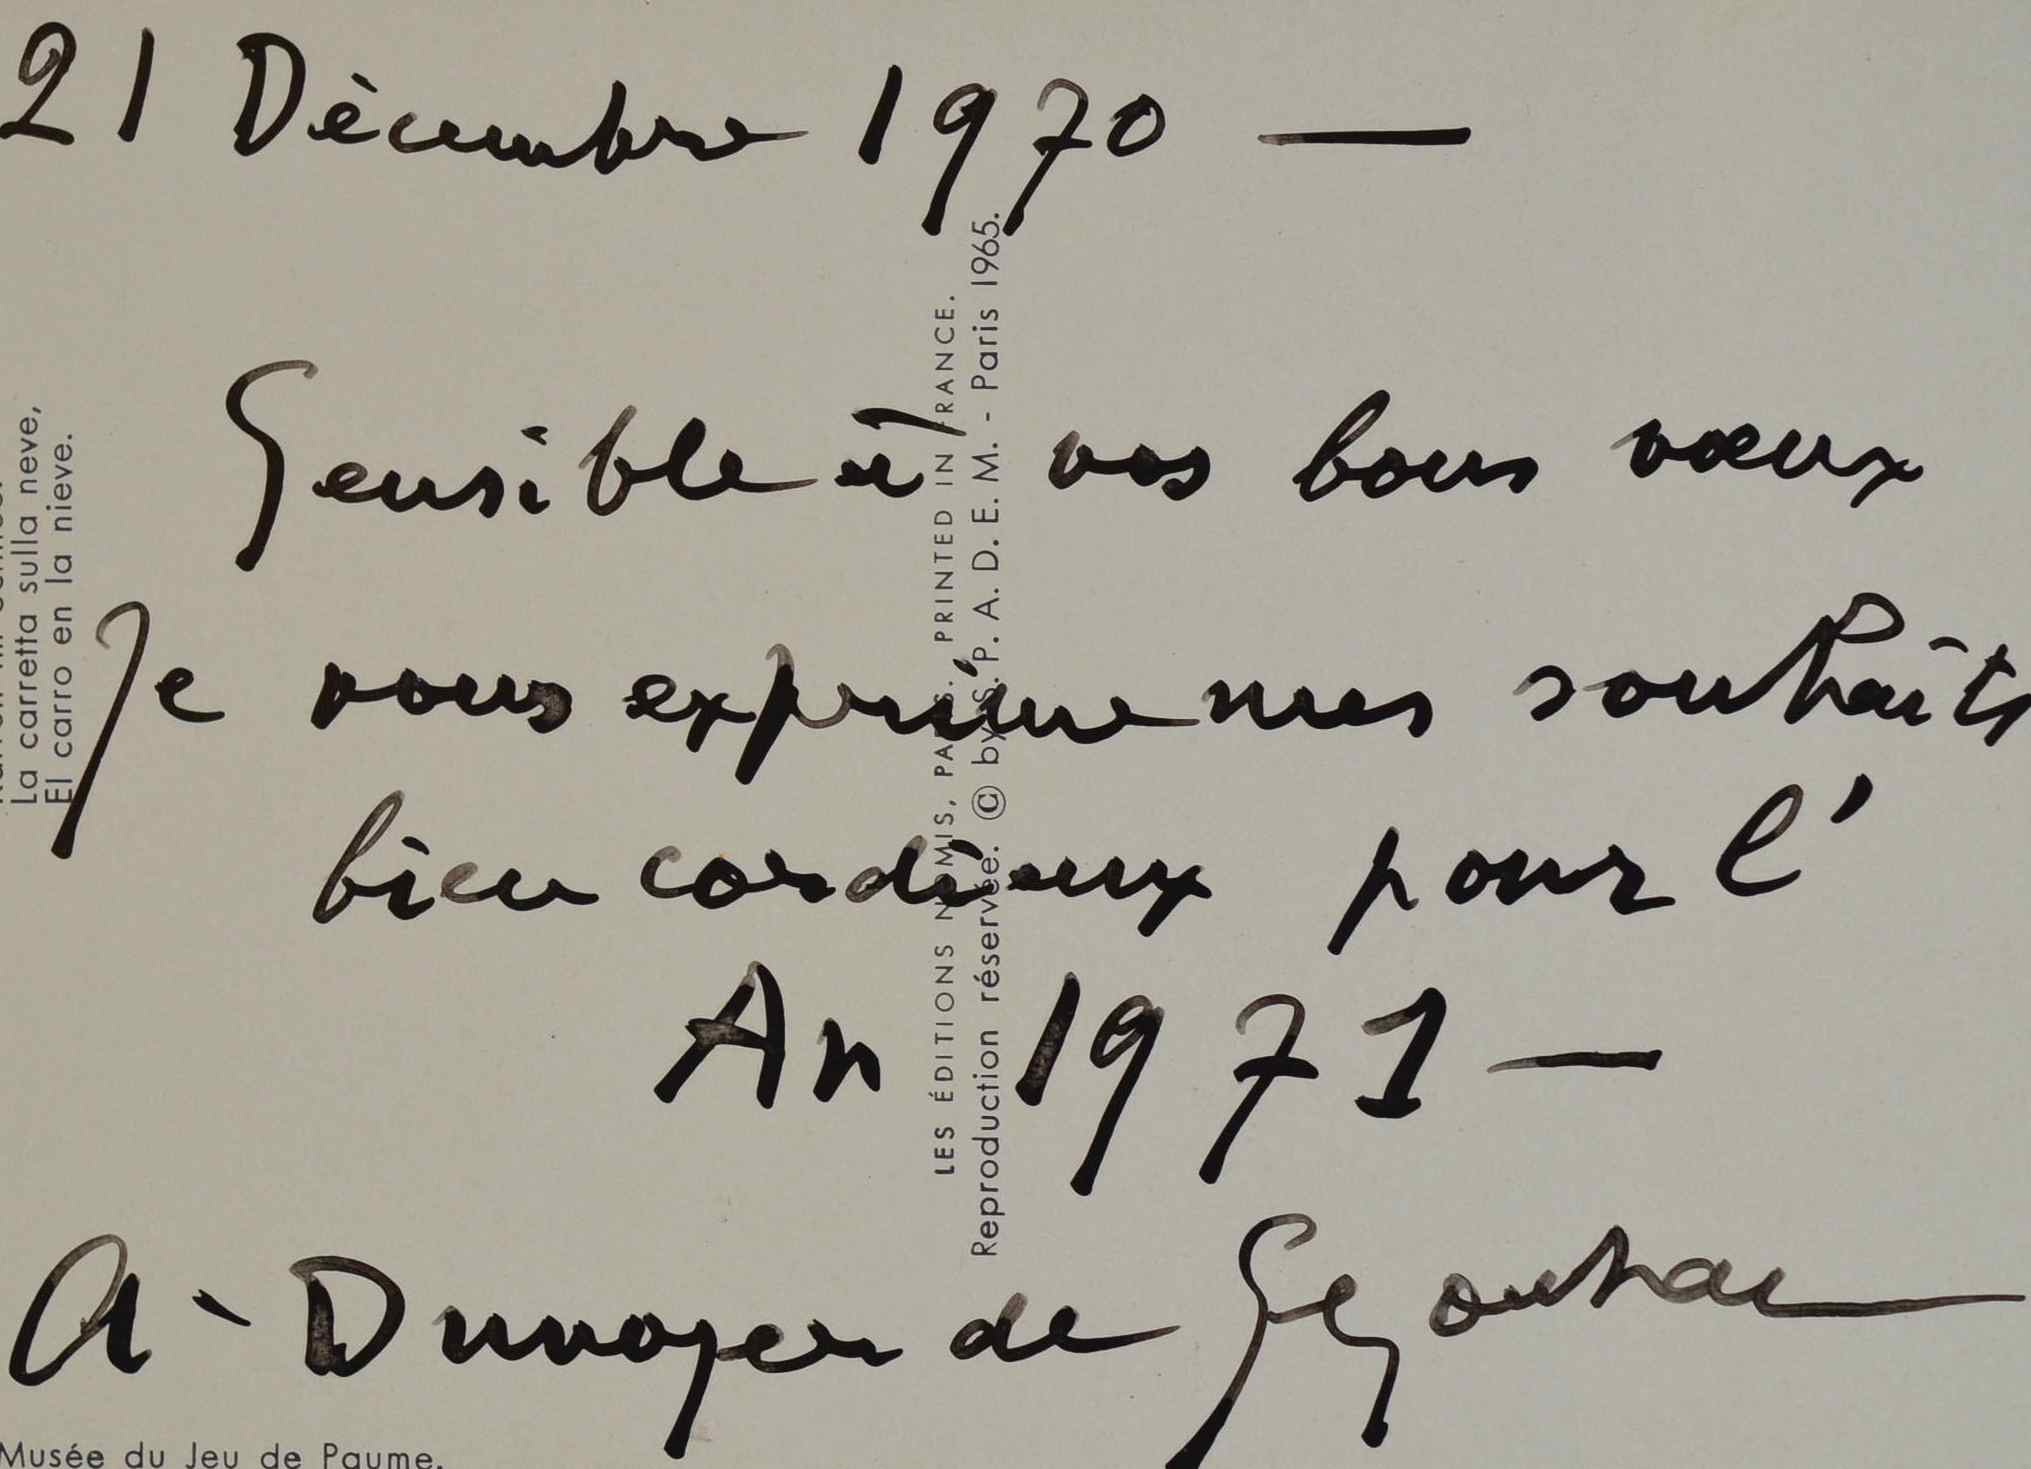 21 Décembre 1970 —
Sensible à vos bons vœux
Je vous exprime mes souhaits
bien cordiaux pour l'
An 1971 —
A. Dunoyer de Segonzac
La carretta sulla neve,
El carro en la nieve.
LES ÉDITIONS NOMIS, PARIS. PRINTED IN FRANCE.
Reproduction réservée. © by S.P.A.D.E.M. - Paris 1965.
Musée du Jeu de Paume.